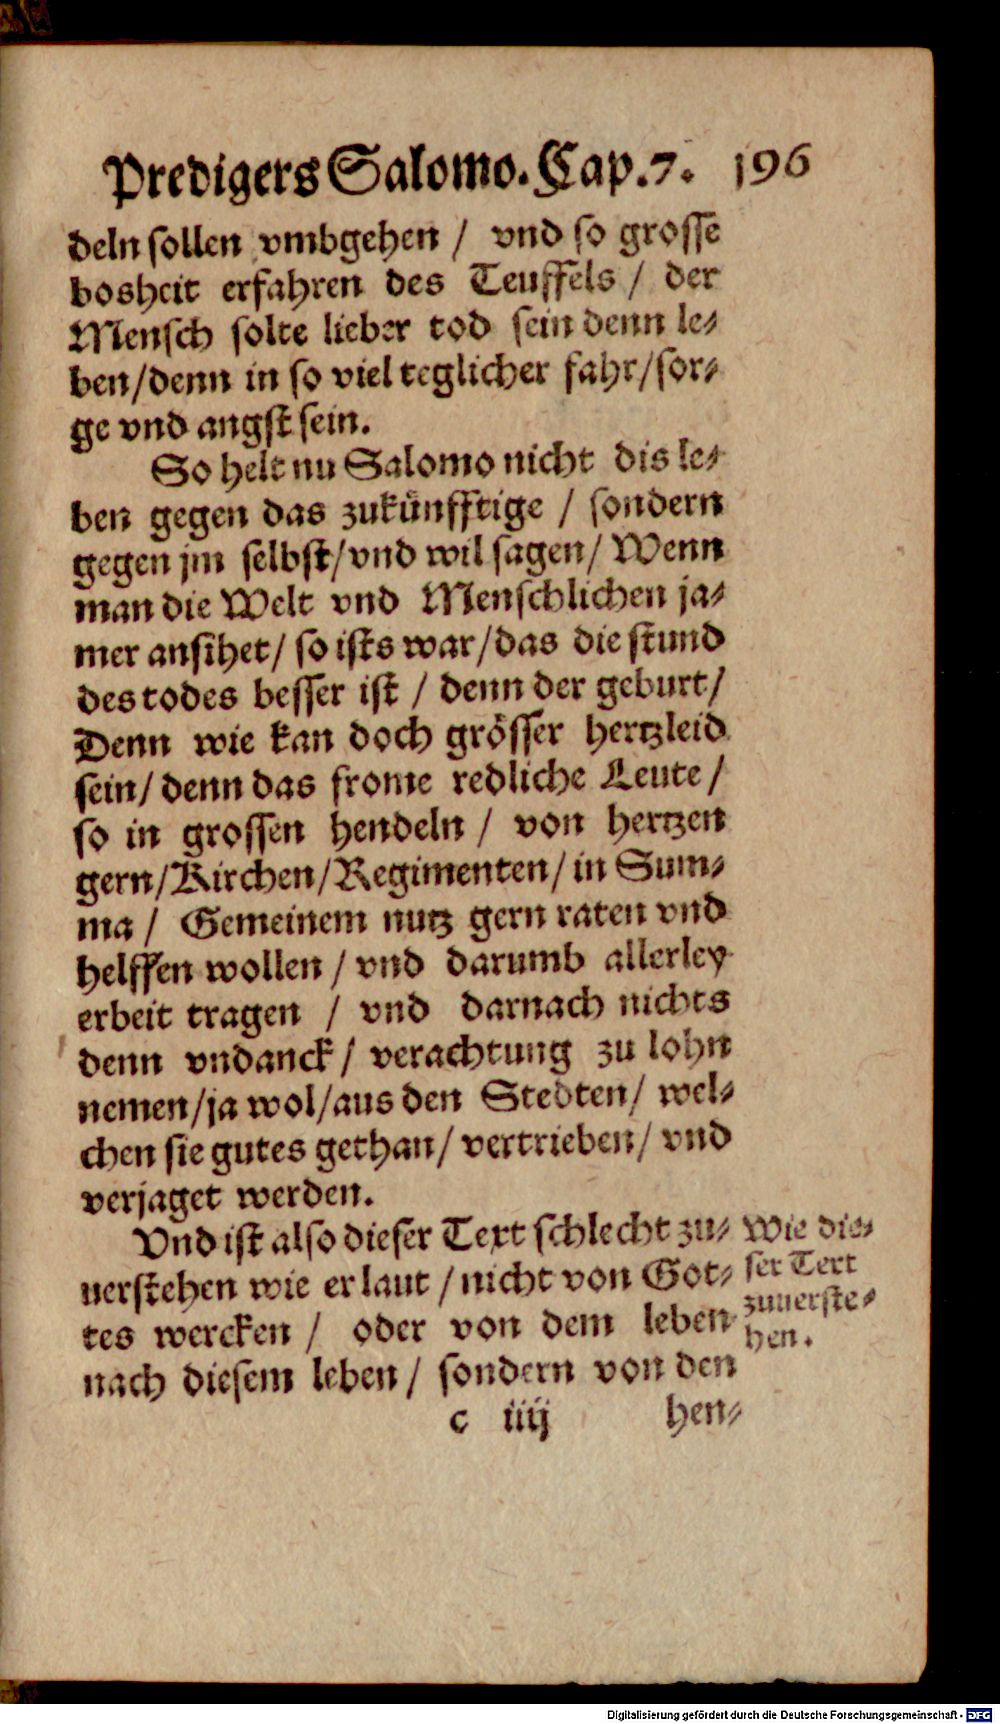 Predigers Salomo. Cap. 7. 196
deln sollen vmbgehen / vnd so grosse
bosheit erfahren des Teuffels / der
Mensch solte lieber tod sein denn le-
ben/denn in so viel teglicher fahr/sor-
ge vnd angst sein.
So helt nu Salomo nicht dis le-
ben gegen das zukůnfftige / sondern
gegen jm selbst/vnd wil sagen/ Wenn
man die Welt vnd Menschlichen ja-
mer ansihet/ so ists war/das die stund
des todes besser ist / denn der geburt/
Denn wie kan doch grösser hertzleid
sein/ denn das frome redliche Leute /
so in grossen hendeln / von hertzen
gern/Kirchen/Regimenten/ in Sum-
ma / Gemeinem nutz gern raten vnd
helffen wollen / vnd darumb allerley
erbeit tragen / vnd darnach nichts
denn vndanck / verachtung zu lohn
nemen/ja wol/aus den Stedten/ wel-
chen sie gutes gethan/ vertrieben/ vnd
verjaget werden.
Vnd ist also dieser Text schlecht zu-
uerstehen wie er laut / nicht von Got-
tes wercken / oder von dem leben
nach diesem leben / sondern von den
Wie die-
ser Text
zuuerste-
hen.
c iiij hen-
Digitalisierung gefördert durch die Deutsche Forschungsgemeinschaft - DFG